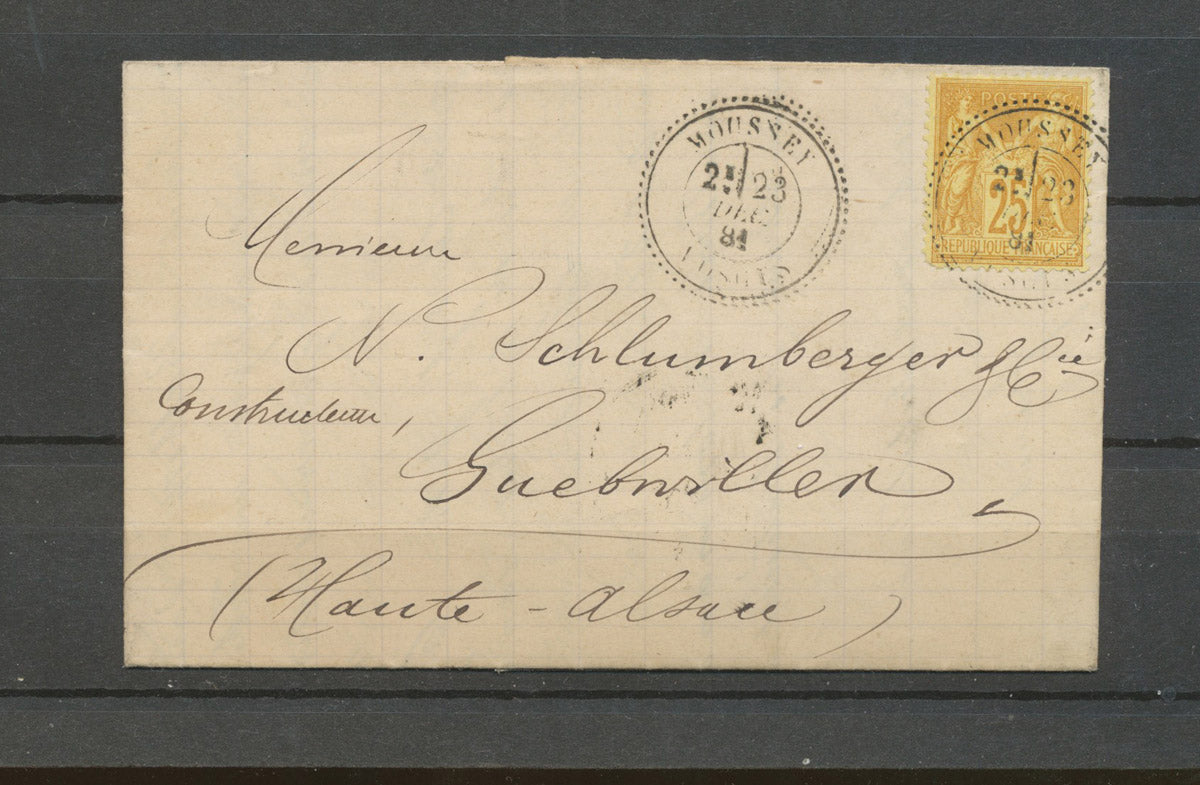 MOUSSEY
2E 23
DEC.
81
VOSGES
POSTES
MOUSSEY
2E 23
81
25
REPUBLIQUE FRANÇAISE
VOSGES
Messieurs
N. Schlumberger & Cie
Constructeurs,
Guebwiller,
(Haute-Alsace)